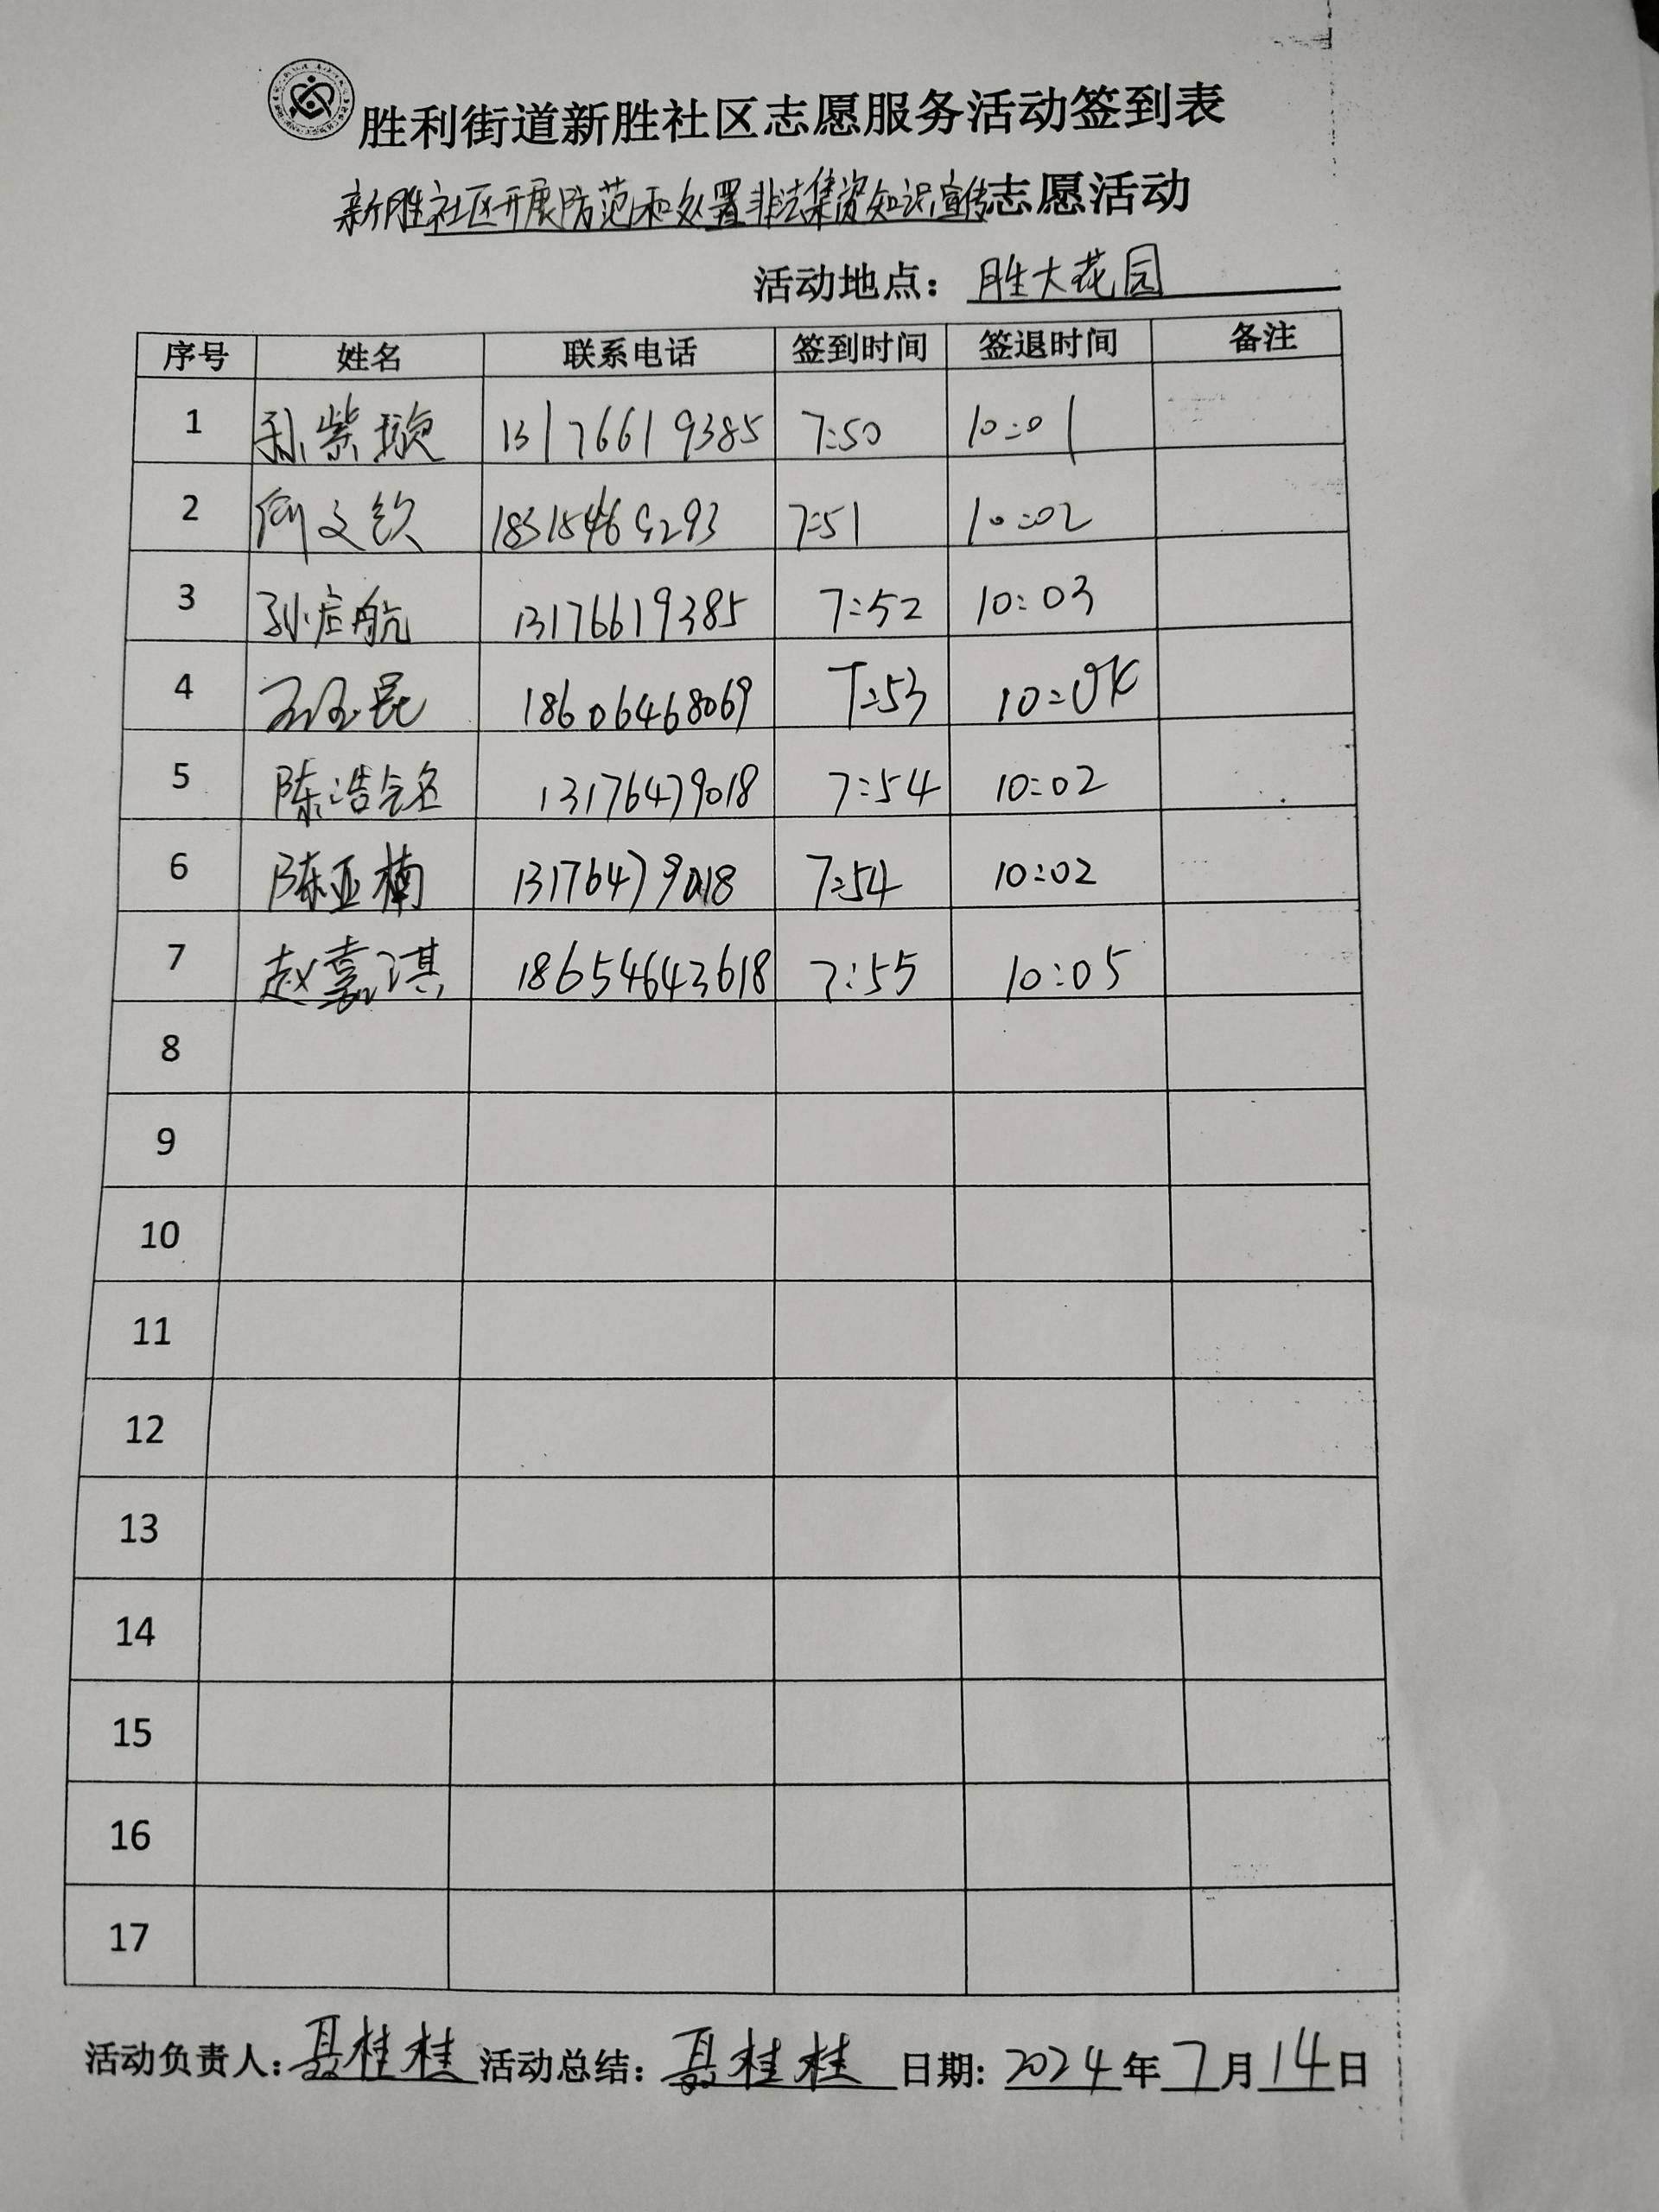 胜利街道新胜社区志愿服务活动签到表
新胜社区开展防范和处置非法集资知识宣传志愿活动
活动地点：胜大花园
序号 姓名 联系电话 签到时间 签退时间 备注
1 孙紫璇 13176619385 7:50 10:01
2 文钦 18315469293 7:51 10:02
3 孙启航 13176619385 7:52 10:03
4 18606468069 7:53 10:
5 陈浩铭 13176479018 7:54 10:02
6 陈亚楠 13176479018 7:54 10:02
7 赵嘉淇 18654643618 7:55 10:05
8
9
10
11
12
13
14
15
16
17
活动负责人：聂桂桂 活动总结：聂桂桂 日期：2024年7月14日